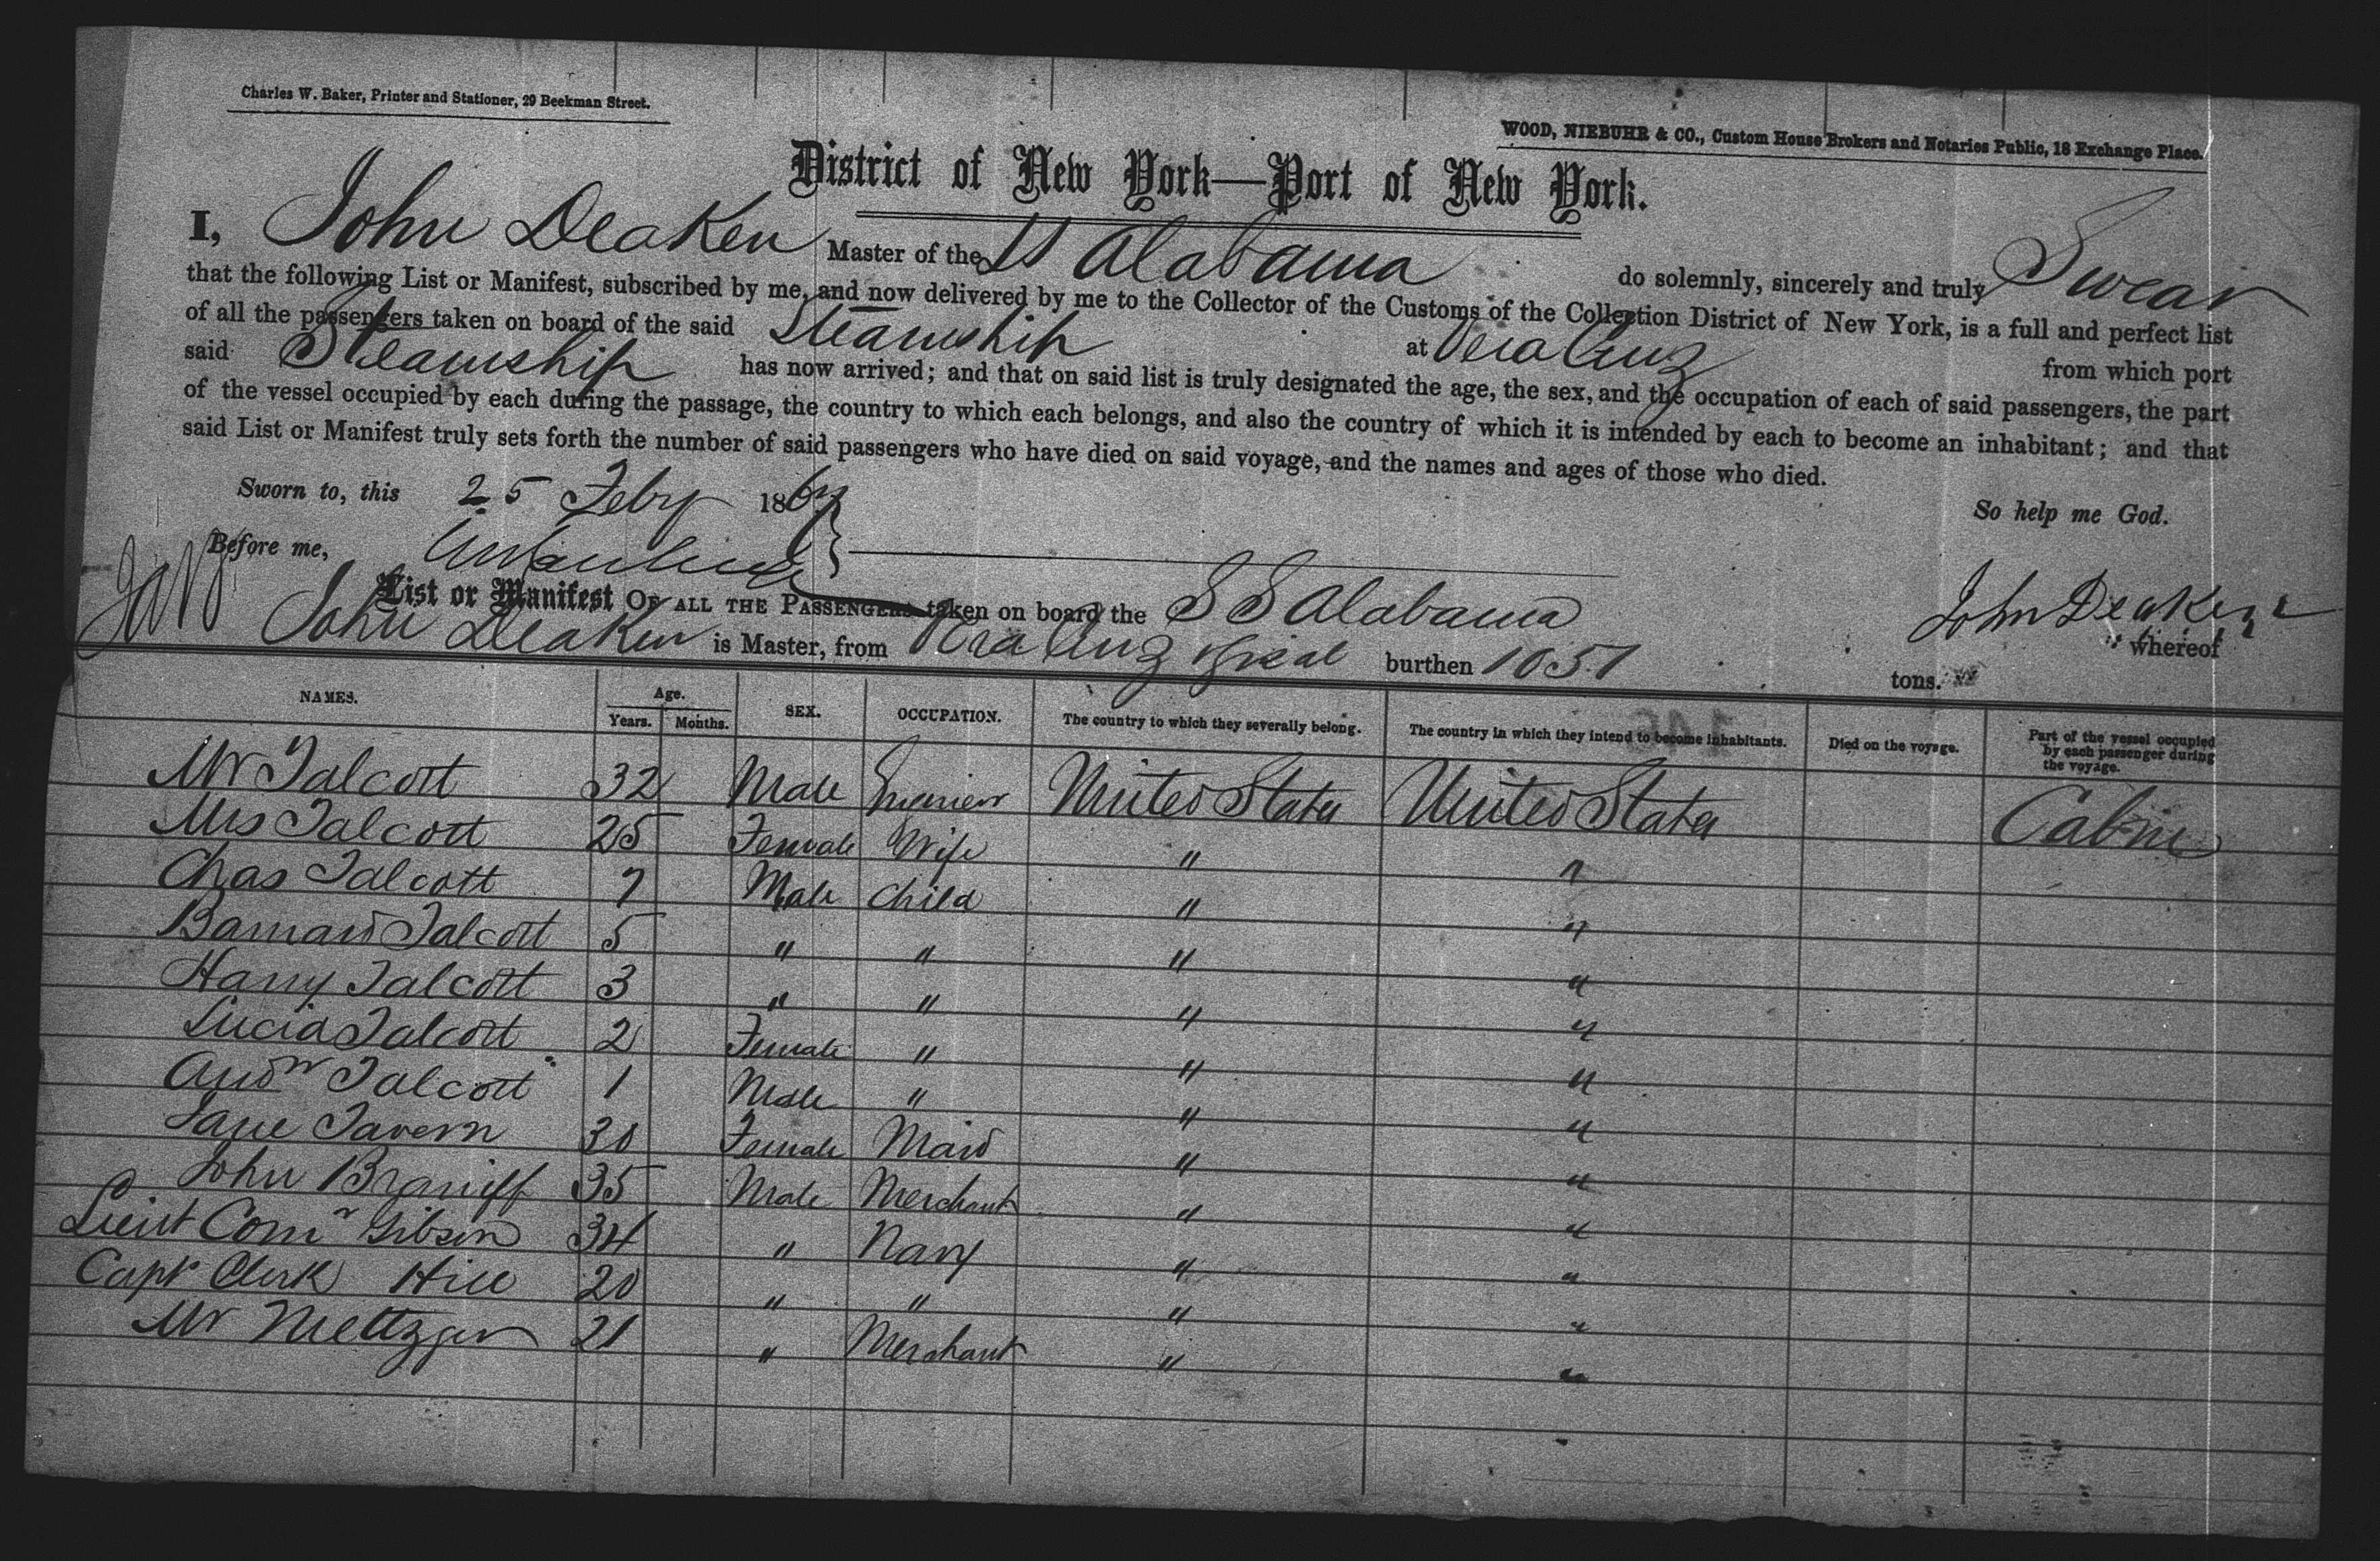 Charles W. Baker, Printer and Stationer, 29 Beekman Street.
WOOD, NIEBUHR & CO., Custom House Brokers and Notaries Public, 18 Exchange Place.
District of New York—Port of New York.
I, John Deaken Master of the SS Alabama do solemnly, sincerely and truly Swear
that the following List or Manifest, subscribed by me, and now delivered by me to the Collector of the Customs of the Collection District of New York, is a full and perfect list
of all the passengers taken on board of the said Steamship at Vera Cruz from which port
said Steamship has now arrived; and that on said list is truly designated the age, the sex, and the occupation of each of said passengers, the part
of the vessel occupied by each during the passage, the country to which each belongs, and also the country of which it is intended by each to become an inhabitant; and that
said List or Manifest truly sets forth the number of said passengers who have died on said voyage, and the names and ages of those who died.
Sworn to, this 25 Feby 1867 So help me God.
Before me,
John Deaken
List or Manifest OF ALL THE PASSENGERS taken on board the SS Alabama whereof
John Deaken is Master, from Vera Cruz burthen 1051 tons.
NAMES. Age. Years. Months. SEX. OCCUPATION. The country to which they severally belong. The country in which they intend to become inhabitants. Died on the voyage. Part of the vessel occupied by each passenger during the voyage.
Mr Talcott 32 Male Engineer United States United States Cabin
Mrs Talcott 25 Female Wife " "
Chas Talcott 7 Male Child " "
Barnard Talcott 5 " " " "
Harry Talcott 3 " " " "
Lucia Talcott 2 Female " " "
Andw Talcott 1 Male " " "
Jane Tavern 30 Female Maid " "
John Braniff 35 Male Merchant " "
Lieut Comr Gibson 34 " Navy " "
Capt Clerk Hill 20 " " " "
Mr Mettzger 21 " Merchant " "